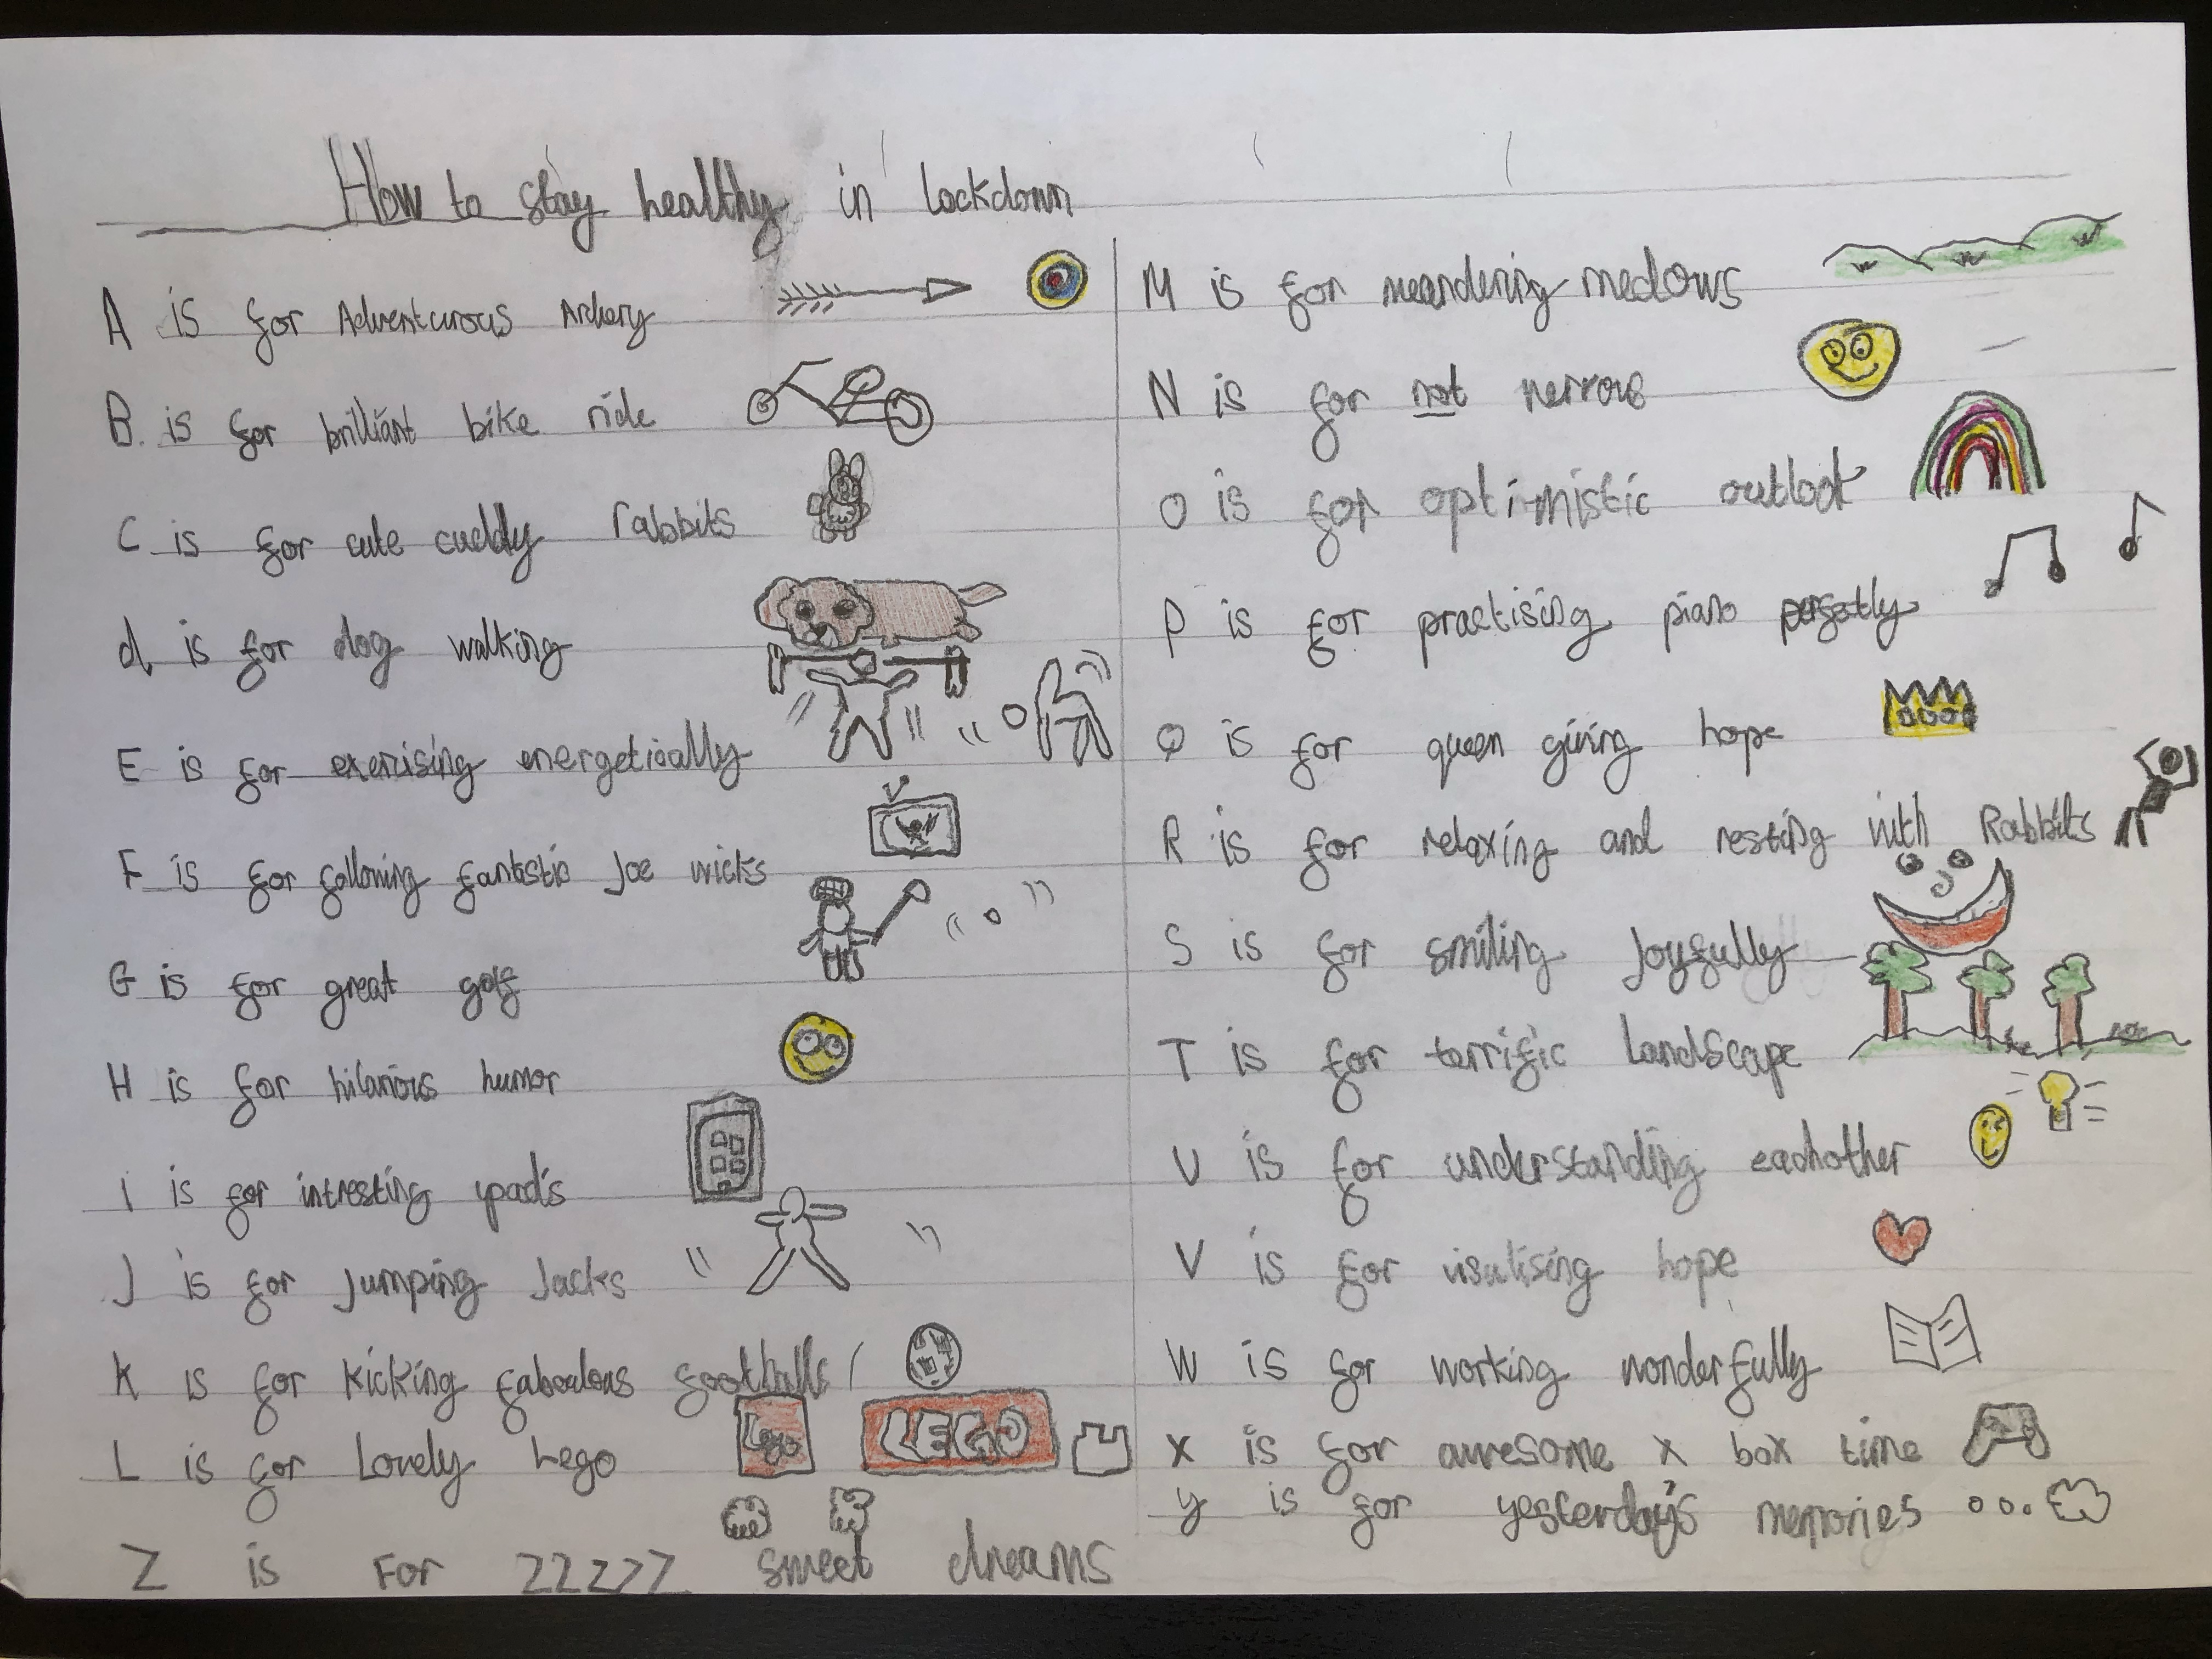 How to stay healthy in lockdown
A is for Adventurous Archery
B. is for brilliant bike ride
C is for cute cuddly rabbits
d is for dog walking
E is for exercising energetically
F is for following fantastic Joe wicks
G is for great golf
H is for hilarious humor
i is for intresting ipad's
J is for Jumping Jacks
K is for kicking faboulous footballs
L is for Lovely Lego
Lego
LEGO
Z is For ZZZZZ sweet dreams
M is for meandering medows
N is for not nervous
O is for optimistic outlook
P is for practising piano perfectly
Q is for queen giving hope
R is for relaxing and resting with Rabbits
S is for smiling Joyfully
T is for terrific landscape
U is for understanding eachother
V is for visulising hope
W is for working wonderfully
X is for awesome x box time
y is for yesterday's memories